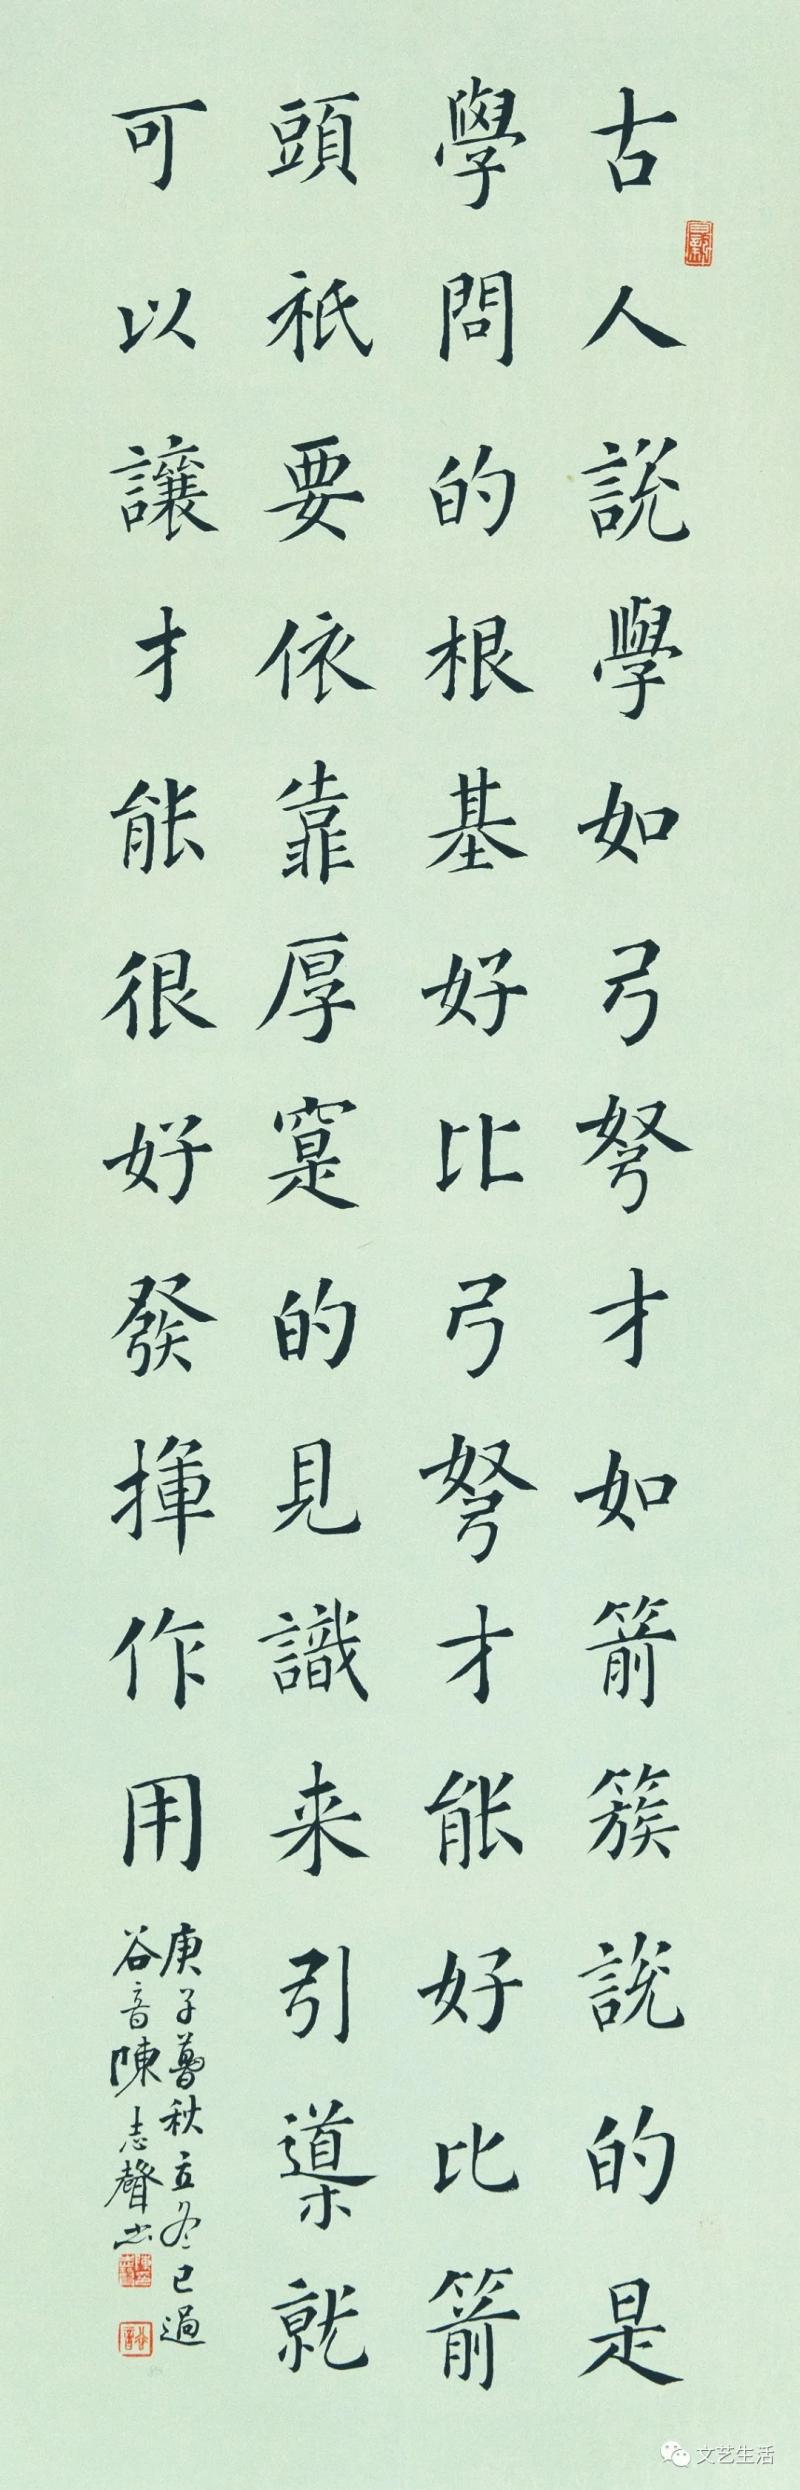 古人說學如弓弩才如箭簇說的是
學問的根基好比弓弩才能好比箭
頭祇要依靠厚寔的見識来引導就
可以讓才能很好發揮作用
庚子暮秋立冬已過
谷音陳志聲书
文艺生活